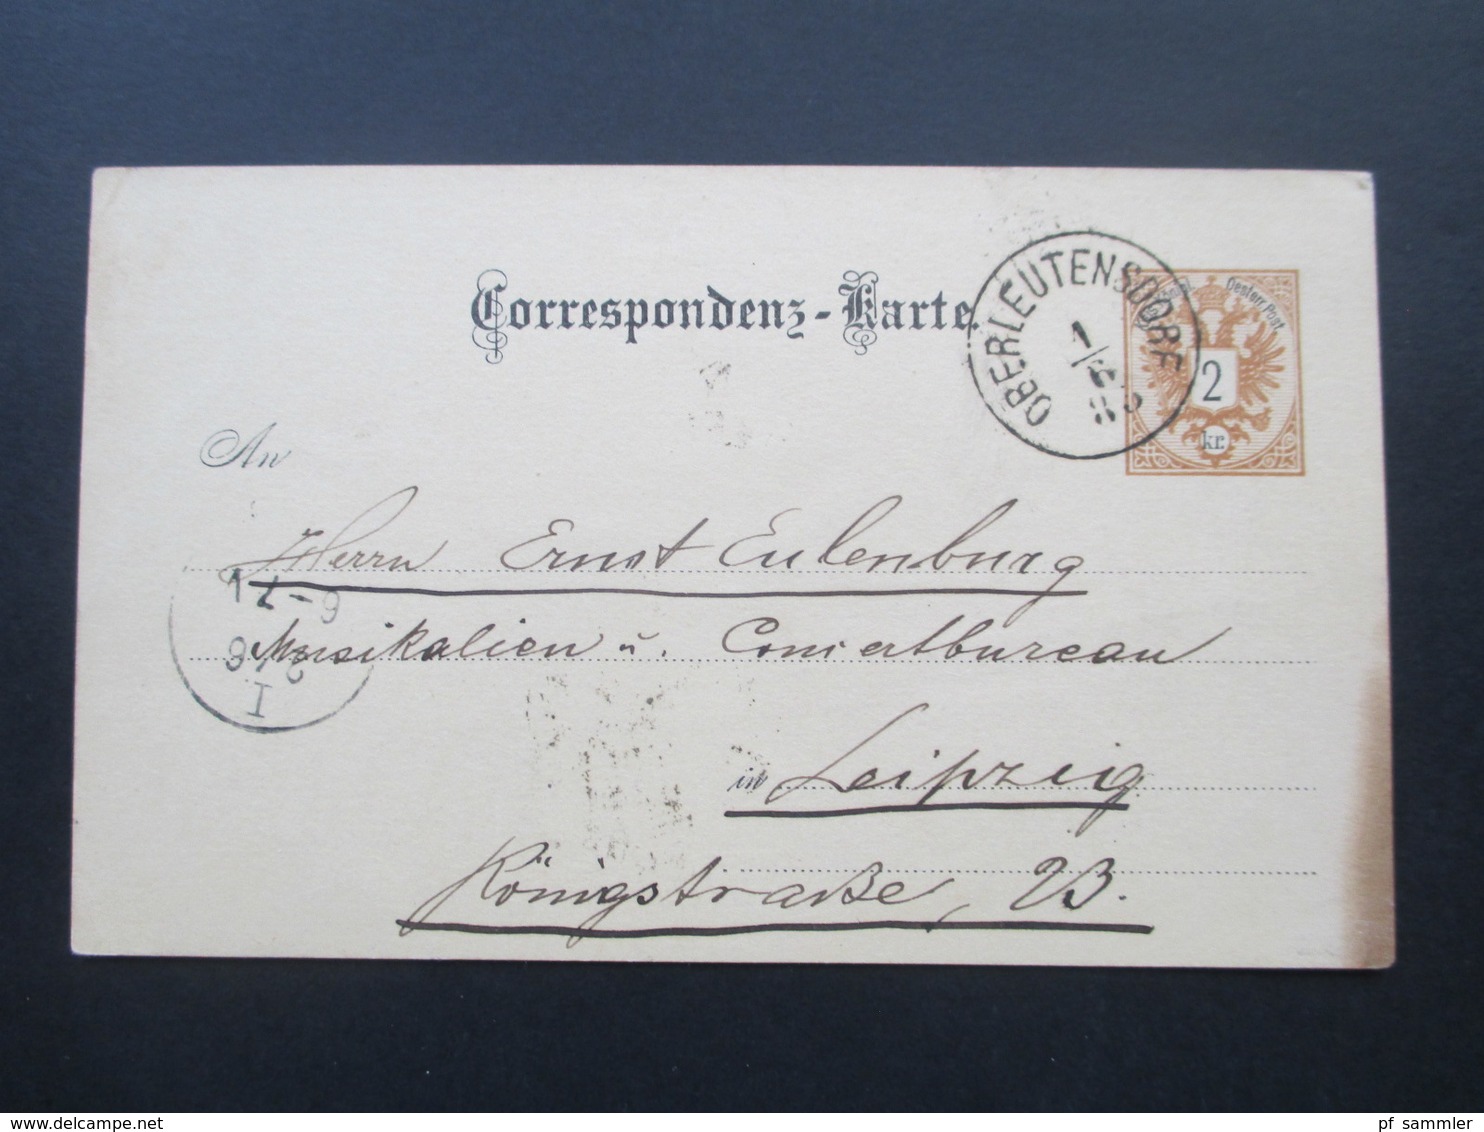 Correspondenz-Karte.
OBERLEUTENSDORF
1/6
85
Oesterr. Post
2
kr.
An
Herrn Ernst Eulenburg
Musikalien u. Concertbureau
in Leipzig
Königstraße, 23.
I
pf_sammler
www.delcampe.net